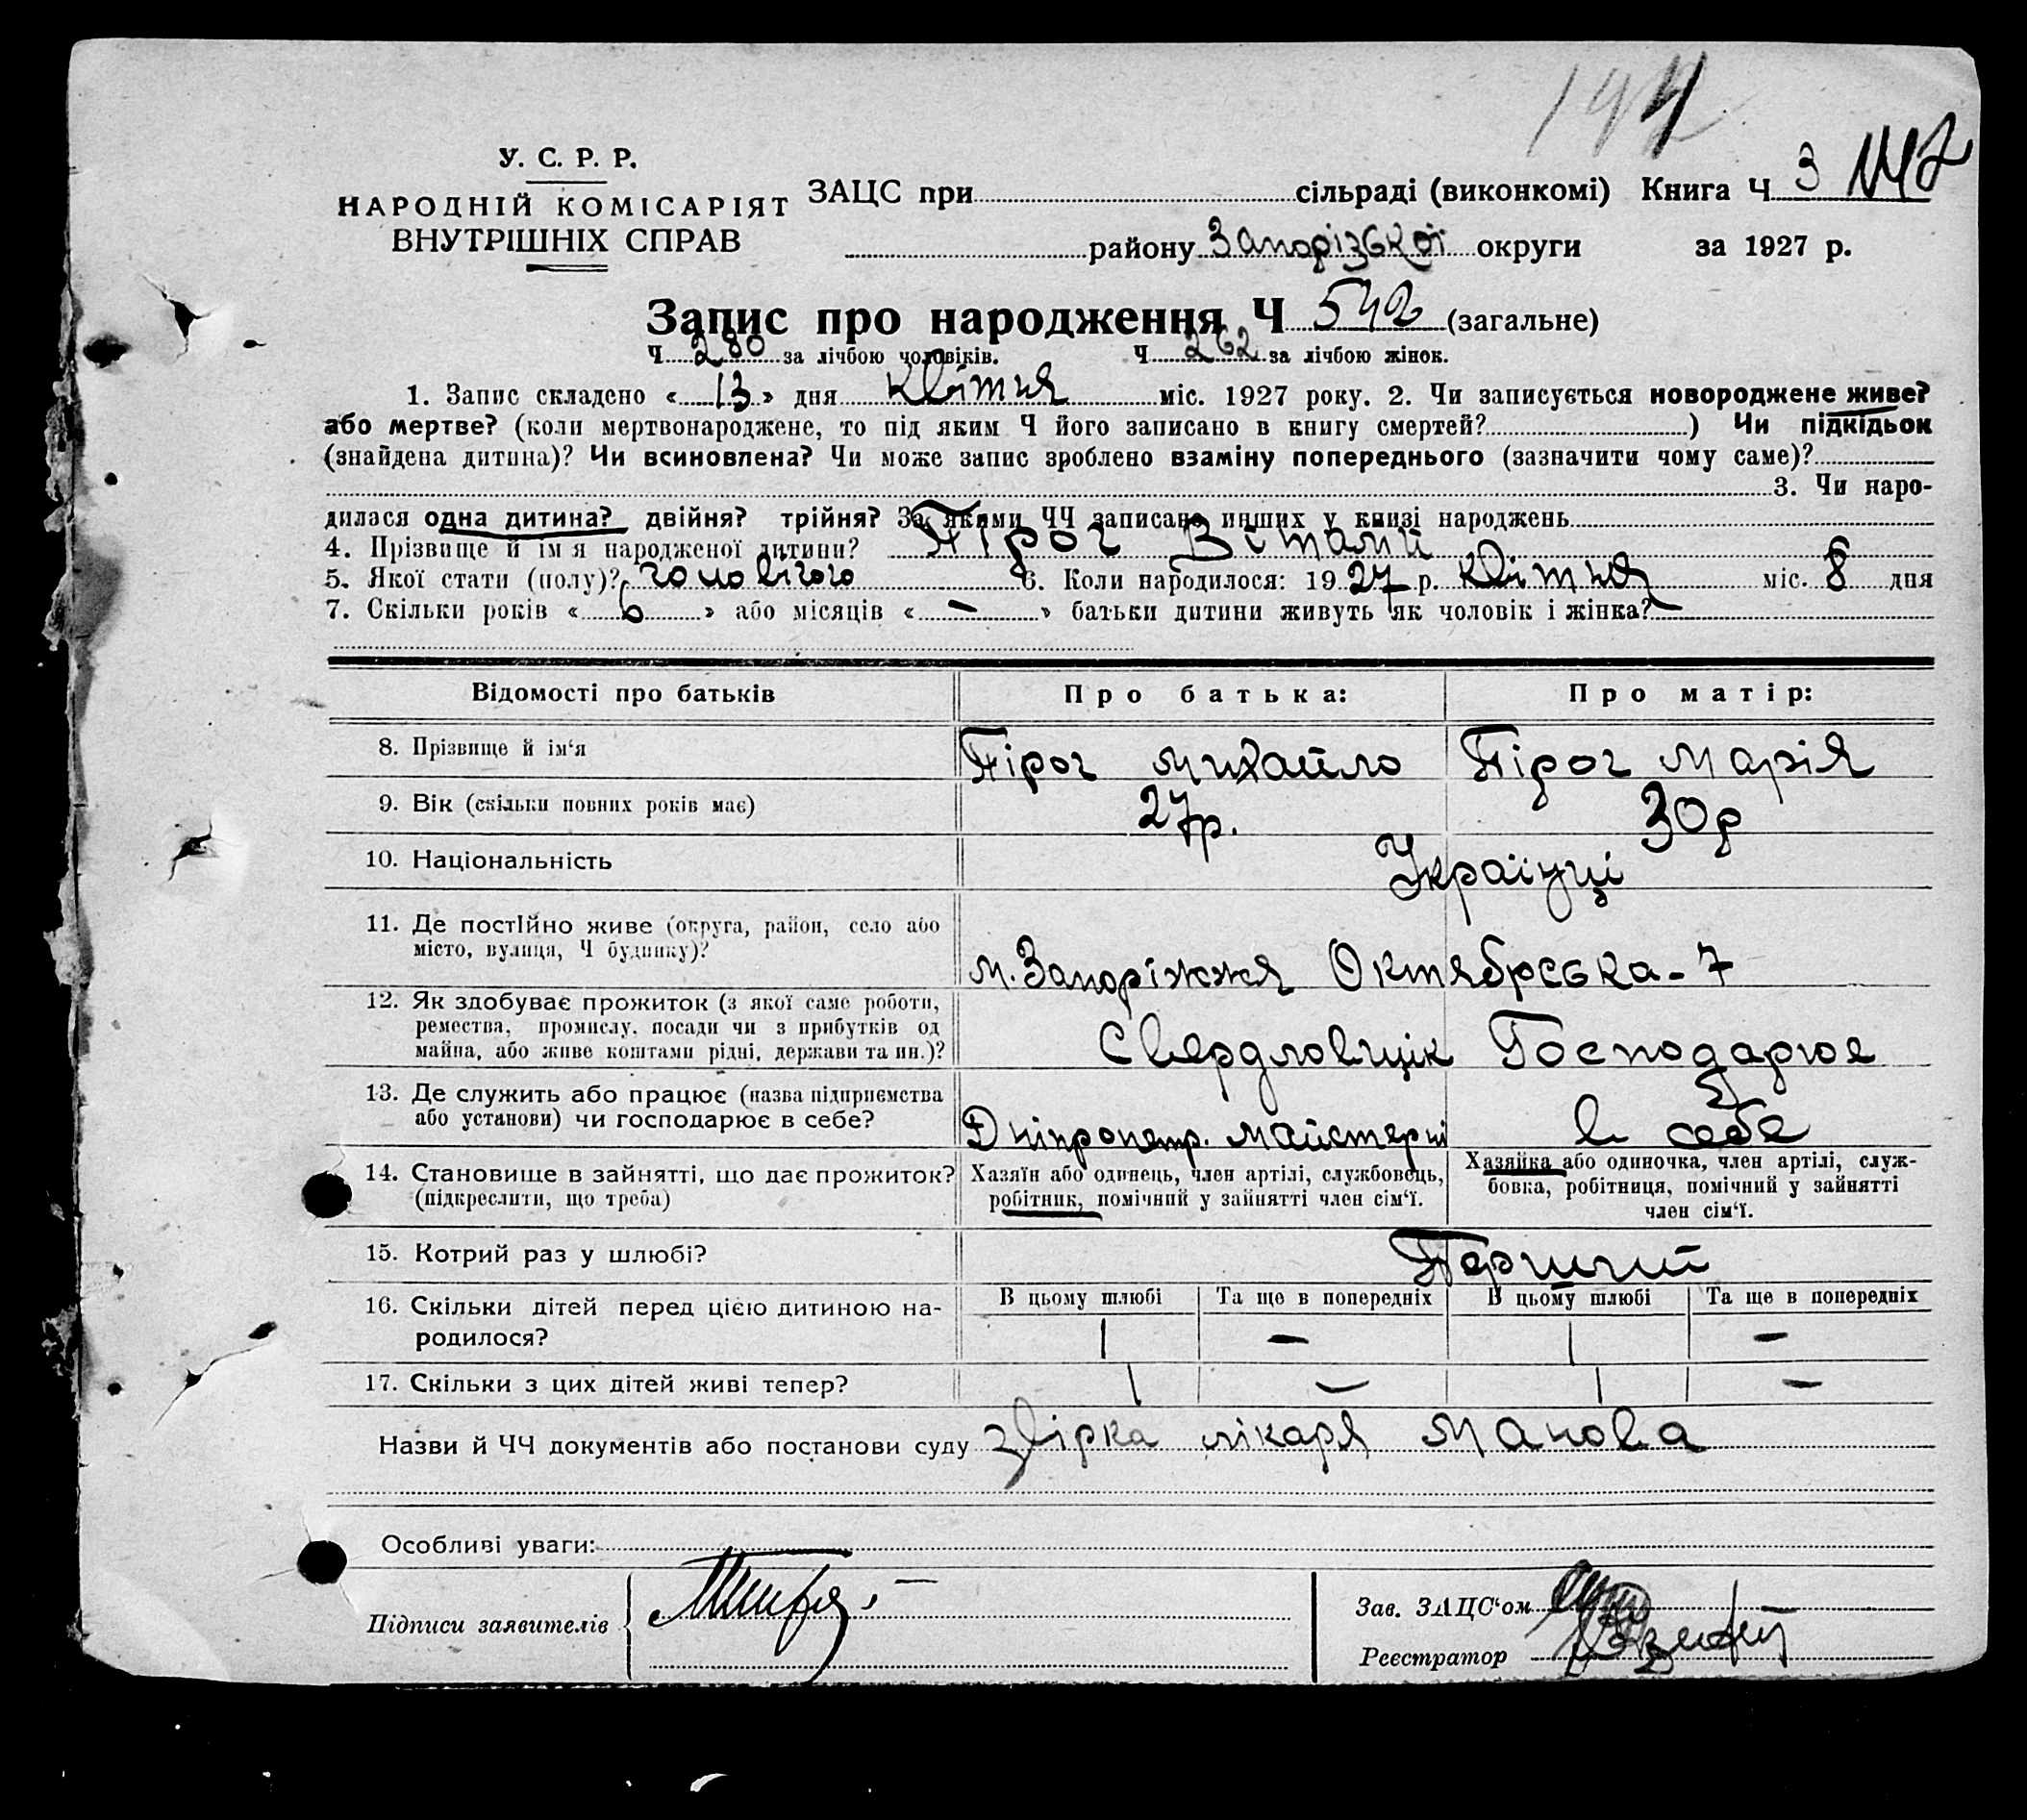 194
У. С. Р. Р.
НАРОДНІЙ КОМІСАРІЯТ
ВНУТРІШНІХ СПРАВ
ЗАЦС при сільраді (виконкомі) Книга Ч 3
району Запорізької округи за 1927 р.
Запис про народження Ч 542 (загальне)
Ч 280 за лічбою чоловіків. Ч 262 за лічбою жінок.
1. Запис складено « 13 » дня квітня міс. 1927 року. 2. Чи записується новороджене живе?
або мертве? (коли мертвонароджене, то під яким Ч його записано в книгу смертей? ) Чи підкідьок
(знайдена дитина)? Чи всиновлена? Чи може запис зроблено взаміну попереднього (зазначити чому саме)?
3. Чи наро-
дилася одна дитина? двійня? трійня? За якими ЧЧ записано инших у книзі народжень
4. Прізвище й ім'я народженої дитини? Пірог Віталій
5. Якої стати (полу)? чоловічого 6. Коли народилося: 1927 р. квітня міс. 8 дня
7. Скільки років « 6 » або місяців « – » батьки дитини живуть як чоловік і жінка? –
Відомості про батьків Про батька: Про матір:
8. Прізвище й ім'я Пірог Михайло Пірог Марія
9. Вік (скільки повних років має) 27р. 30р
10. Національність Українці
11. Де постійно живе (округа, район, село або
місто, вулиця, Ч будинку)? м. Запоріжжя Октябрська-7
12. Як здобуває прожиток (з якої саме роботи,
ремества, промислу, посади чи з прибутків од
майна, або живе коштами рідні, держави та ин.)? Свердловщік Господарює
13. Де служить або працює (назва підприємства
або установи) чи господарює в себе? Дніпропетр. майстерні в себе
14. Становище в зайнятті, що дає прожиток?
(підкреслити, що треба)
Хазяїн або одинець, член артілі, службовець,
робітник, помічний у зайнятті член сім'ї.
Хазяйка або одиночка, член артілі, служ-
бовка, робітниця, помічний у зайнятті
член сім'ї.
15. Котрий раз у шлюбі? Перший
16. Скільки дітей перед цією дитиною на-
родилося?
В цьому шлюбі Та ще в попередніх В цьому шлюбі Та ще в попередніх
1 – 1 –
17. Скільки з цих дітей живі тепер? 1 – 1 –
Назви й ЧЧ документів або постанови суду звірка лікаря Манова
Особливі уваги:
Підписи заявителів
Зав. ЗАЦС'ом
Реєстратор